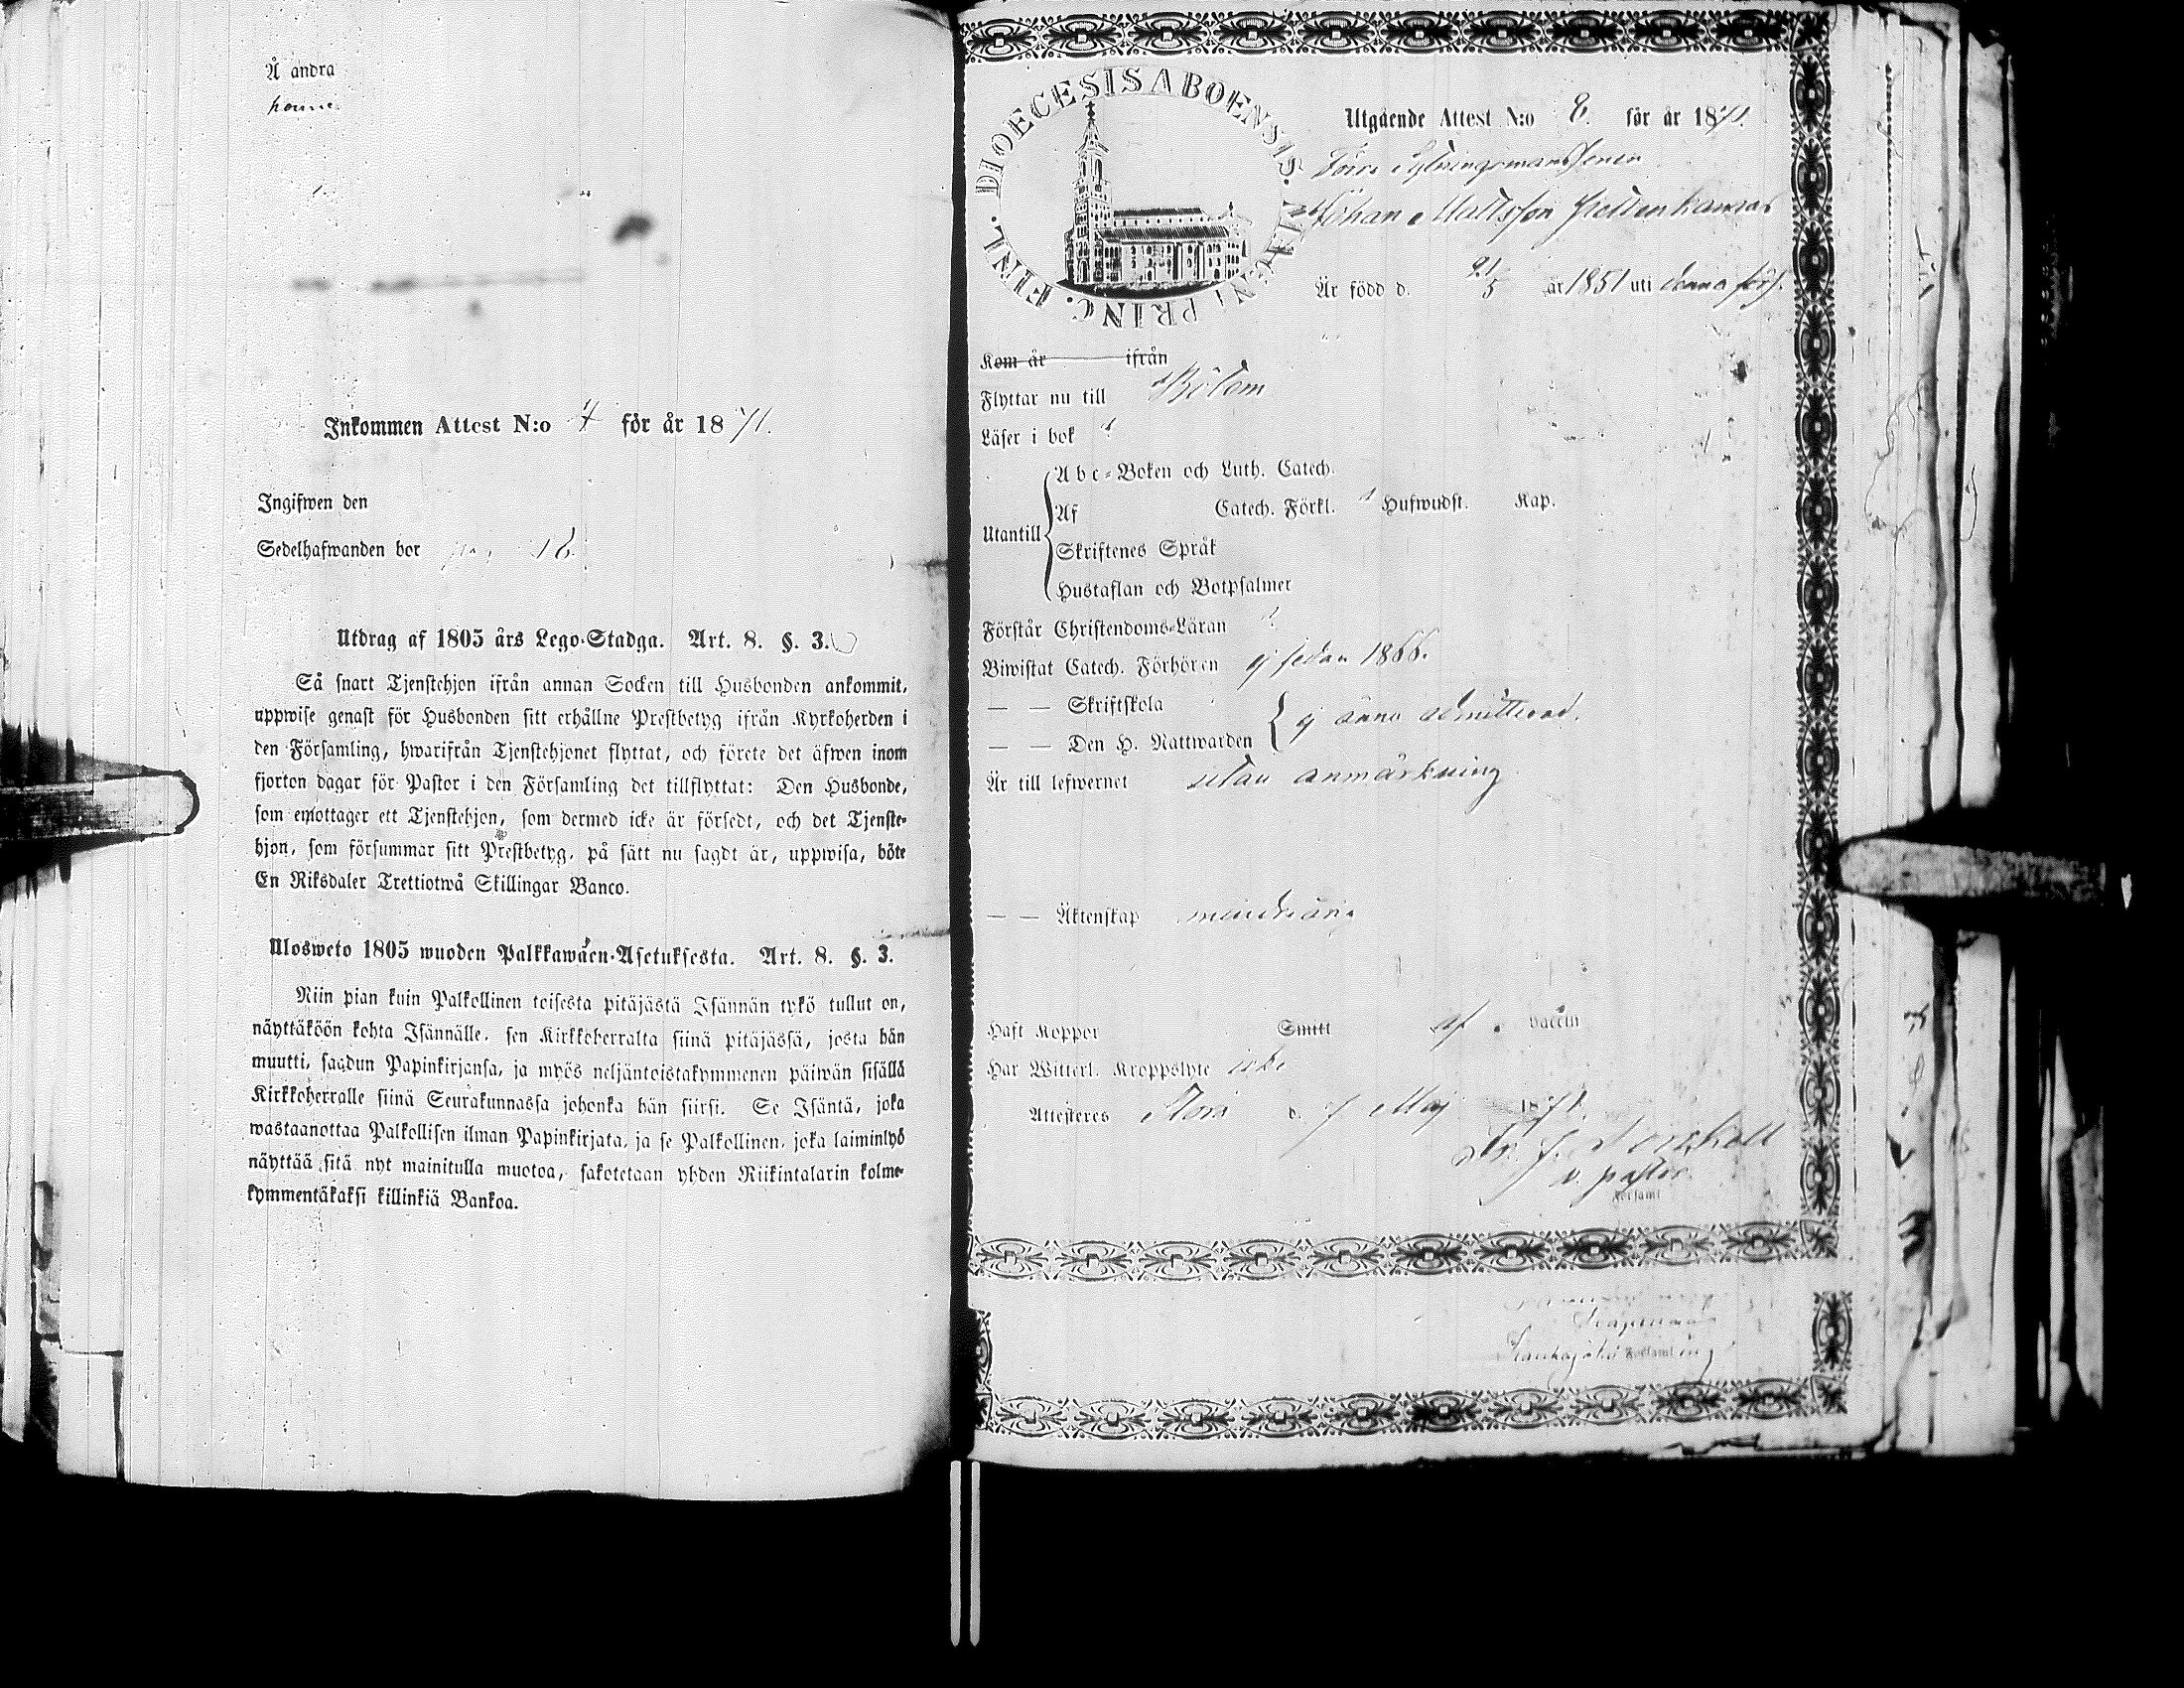 Å andra
Inkommen Attest N:o 7 för år 1871.
Ingifwen den
Sedelhafwanden bor
Utdrag af 1805 års Lego-Stadga. Art. 8. §. 3.
Så snart Tjenstehjon ifrån annan Socken till Husbonden ankommit,
uppwise genast för Husbonden sitt erhållne Prestbetyg ifrån Kyrkoherden i
den Församling, hwarifrån Tjenstehjonet flyttat, och förete det äfwen inom
fjorton dagar för Pastor i den Församling det tillflyttat: Den Husbonde,
som emottager ett Tjenstehjon, som dermed icke är försedt, och det Tjenste-
hjon, som försummar sitt Prestbetyg, på sätt nu sagdt är, uppwisa, böte
En Riksdaler Trettiotwå Skillingar Banco.
Ulosweto 1805 wuoden Palkkawäen-Asetuksesta. Art. 8. §. 3.
Niin pian kuin Palkollinen toisesta pitäjästä Isännän tykö tullut on,
näyttäköön kohta Isännälle, sen Kirkkoherralta siinä pitäjässä, josta hän
muutti, saadun Papinkirjansa, ja myös neljäntoistakymmenen päiwän sisällä
Kirkkoherralle siinä Seurakunnassa johonka hän siirsi. Se Isäntä, joka
wastaanottaa Palkollisen ilman Papinkirjata, ja se Palkollinen, joka laiminlyö
näyttää sitä nyt mainitulla muotoa, sakotetaan yhden Riikintalarin kolme-
kymmentäkaksi killinkiä Bankoa.
FINL. DIOECESIS ABOENSIS. PRINC.
Utgående Attest N:o 8. för år 1871.
Johan Mattsson
Är född d. 21/5 år 1851 uti denna förs.
Kom år ifrån
Flyttar nu till
Läser i bok
Abc-Boken och Luth. Catech.
Utantill Af Catech. Förkl. Hufwudst. Kap.
Skriftenes Språk
Hustaflan och Botpsalmer
Förstår Christendoms-Läran
Biwistat Catech. Förhören ej sedan 1866.
— — Skriftskola
— — Den H. Nattwarden ej ännu admitterad.
Är till lefwernet utan anmärkning
— — Äktenskap minderårig
Haft Koppor Smitt af vaccin
Har Witterl. Kroppslyte icke
Attesteres d. 7 Maj 1871.
v. pastor.
Församl